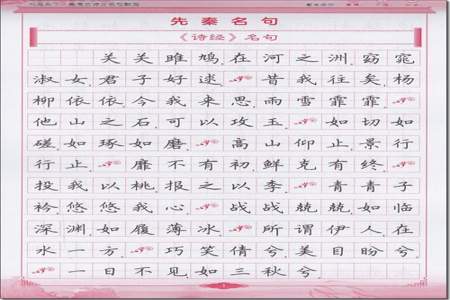 先秦名句
《诗经》名句
关关雎鸠,在河之洲,窈窕
淑女,君子好逑。昔我往矣,杨
柳依依,今我来思,雨雪霏霏。
他山之石,可以攻玉。如切如
磋,如琢如磨。高山仰止,景行
行止。靡不有初,鲜克有终。
投我以桃,报之以李。青青子
衿,悠悠我心。战战兢兢,如临
深渊,如履薄冰。所谓伊人,在
水一方。巧笑倩兮,美目盼兮。
一日不见,如三秋兮。